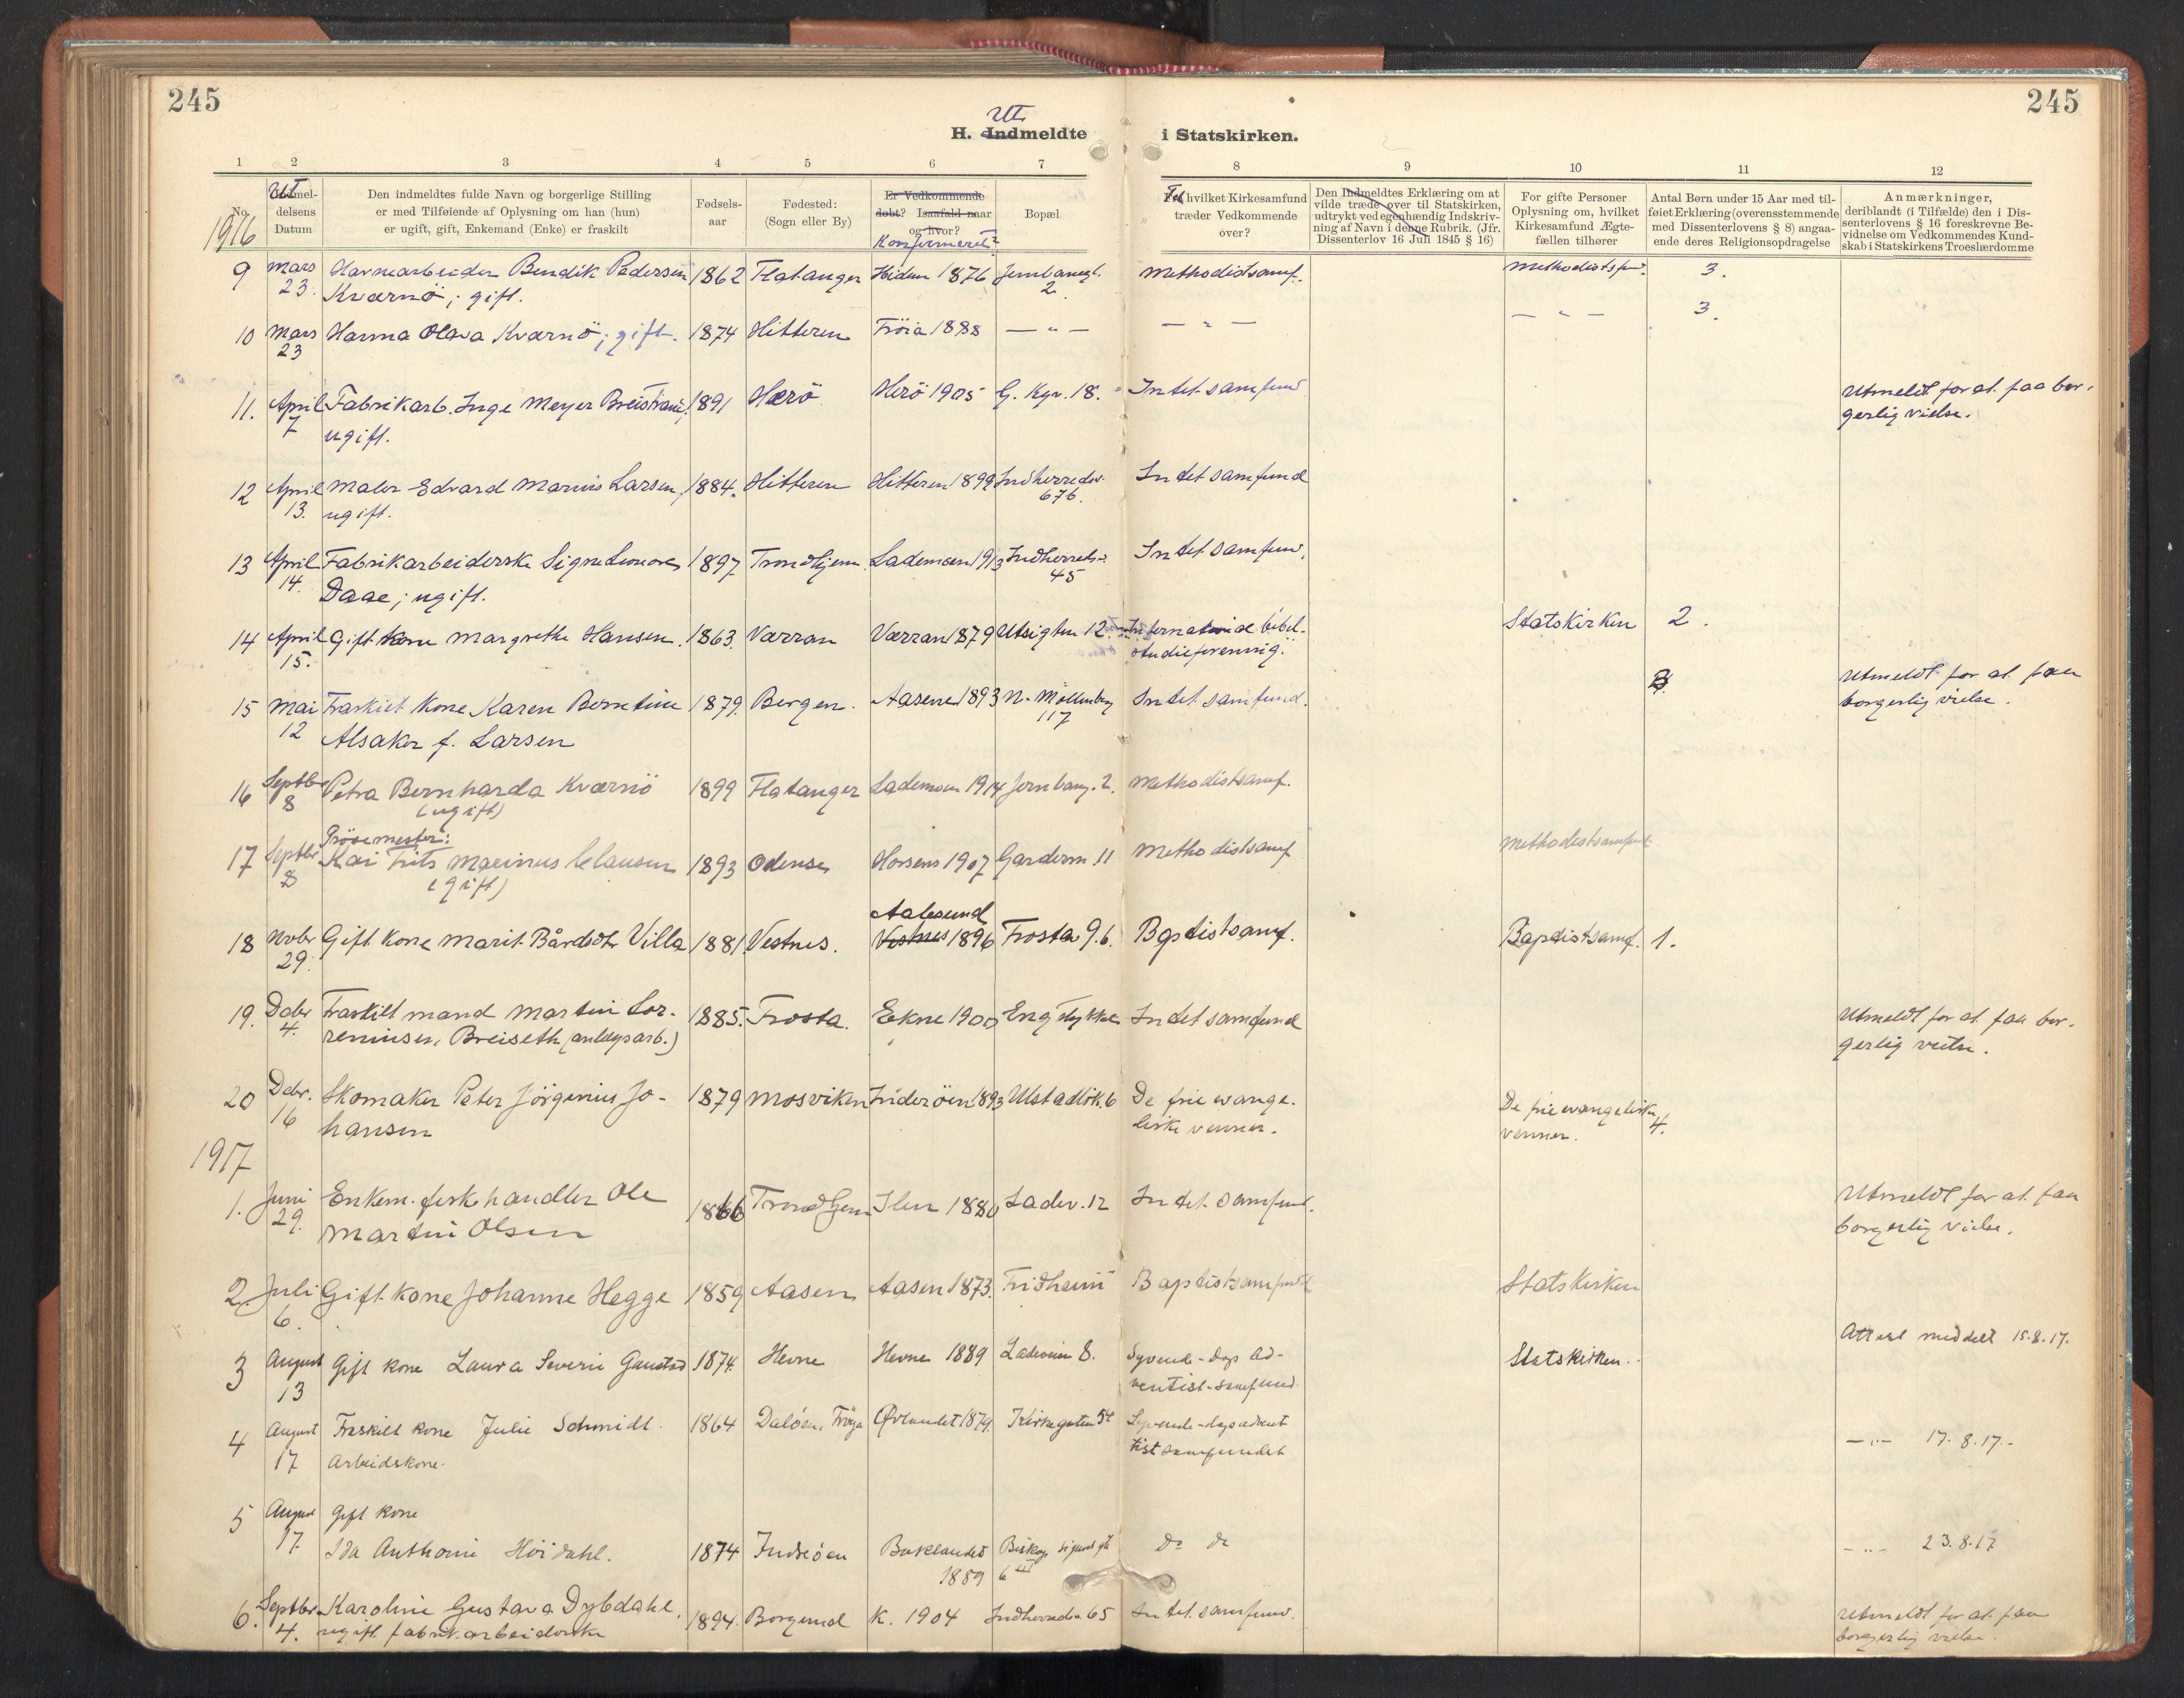 245
245
H. Indmeldte i Statskirken.
Ut
1 2 3 4 5 6 7 8 9 10 11 12
No.
1916
Ut
Indmel-
delsens
Datum
Den indmeldtes fulde Navn og borgerlige Stilling
er med Tilføiende af Oplysning om han (hun)
er ugift, gift, Enkemand (Enke) er fraskilt
Fødsels-
aar
Fødested:
(Sogn eller By)
Er Vedkommende
døbt? Isaafald naar
og hvor?
Konfirmeret?
Bopæl
Til hvilket Kirkesamfund
træder Vedkommende
over?
Den Indmeldtes Erklæring om at
vilde træde over til Statskirken,
udtrykt ved egenhændig Indskriv-
ning af Navn i denne Rubrik. (Jfr.
Dissenterlov 16 Juli 1845 § 16)
For gifte Personer
Oplysning om, hvilket
Kirkesamfund Ægte-
fællen tilhører
Antal Børn under 15 Aar med til-
føiet Erklæring (overensstemmende
med Dissenterlovens § 8) angaa-
ende deres Religionsopdragelse
Anmærkninger,
deriblandt (i Tilfælde) den i Dis-
senterlovens § 16 foreskrevne Be-
vidnelse om Vedkommendes Kund-
skab i Statskirkens Troeslærdomme
9 Mars Havnearbeider Bendik Pedersen 1862 Flatanger 1876 Jernbanegt. Methodistsamf. 3.
23. Kværnö; gift. 2
10 Mars Hanna Olava Kværnö; gift. 1874 Hitteren Fröia 1888 — " — — " — — " — 3.
23
11. April Fabrikarb. Inge Meyer 1891 Herö Herö 1905 G. Kgv. 18. Intet samfund Utmeldt for at faa bor-
7 ugift. gerlig vielse.
12 April Maler Edvard Marius Larsen, 1884. Hitteren Hitteren 1899 Indherredsv. Intet samfund
13. ugift. 676.
13 April Fabrikarbeiderske Signe Leonora 1897 Trondhjem Lademoen 1913 Indherredsv. Intet samfund.
14. Daae; ugift. 45
14 April Gift kone Margrethe Hansen. 1863. Værran Værran 1879 Utsigten 12. Internationale bibel- Statskirken 2.
15. studieforening.
15 Mai Fraskilt kone Karen Berntine 1879. Bergen. Aasene 1893 N. Möllenberg Intet samfund. 3. Utmeldt for at faa
12 Alsaker f. Larsen 117 borgerlig vielse.
16 Septbr Petra Bernharda Kværnö 1899 Flatanger Lademoen 1914 Jernbaneg. 2. Methodistsamf.
8 (ugift)
Prösemester:
17 Septbr Kai Frits Marinus Clausen 1893 Odense Horsens 1907 Garderm. 11 Methodistsamf Methodistsamfund
8 (gift)
Aalesund
18 Novbr Gift kone Marit Bårdsdtr Villa 1881. Vestnes. Vestnes 1896 Frosta g. 6. Baptistsamf. Baptistsamf. 1.
29.
19. Decbr Fraskilt mand Martin Lor- 1885. Frosta. Ekne 1900 Engstykket Intet samfund Utmeldt for at faa bor-
4. reninsen, Breiseth (anlegsarb.) gerlig vielse.
20 Decbr. Skomaker Peter Jörginius Jo- 1879 Mosviken Inderöen 1893 Ulstadlök. 6 De frie evange- De frie evangeliske 4.
16 hansen liske venner. venner.
1917
1. Juni Enkem. fiskehandler Ole 1866 Trondhjem Ilen 1880 Ladev. 12 Intet samfund. Utmeldt for at faa
29. Martin Olsen borgerlig vielse.
2. Juli Gift kone Johanne Hegge 1859 Aasen Aasen 1873. Fridheim Baptistsamfund Statskirken
6.
3 August Gift kone Laura Severine Ganstad 1874. Hevne Hevne 1889 Ladeveien 8. Syvende-dags ad- Statskirken. Attest meddelt 15.8.17.
13 ventist-samfund.
4 August Fraskilt kone Julie Schmidt. 1864 Dalöen, Fröya Ørlandet 1879. Kirkegaten 54 Syvende-dags advent — " — 17.8.17.
17 Arbeidskone. tist samfundet
5 August Gift kone
17. Ida Anthonie Höidahl. 1874 Inderöen Baklandet Biskop Sigurds gt do do — " — 23.8.17
1889 6 III
6. Septbr. Karoline Gustava Dybdahl, 1894. Borgund K. 1904 Indherredsv. 65 Intet samfund. Utmeldt for at faa
4. ugift fabrikarbeiderske borgerlig vielse.